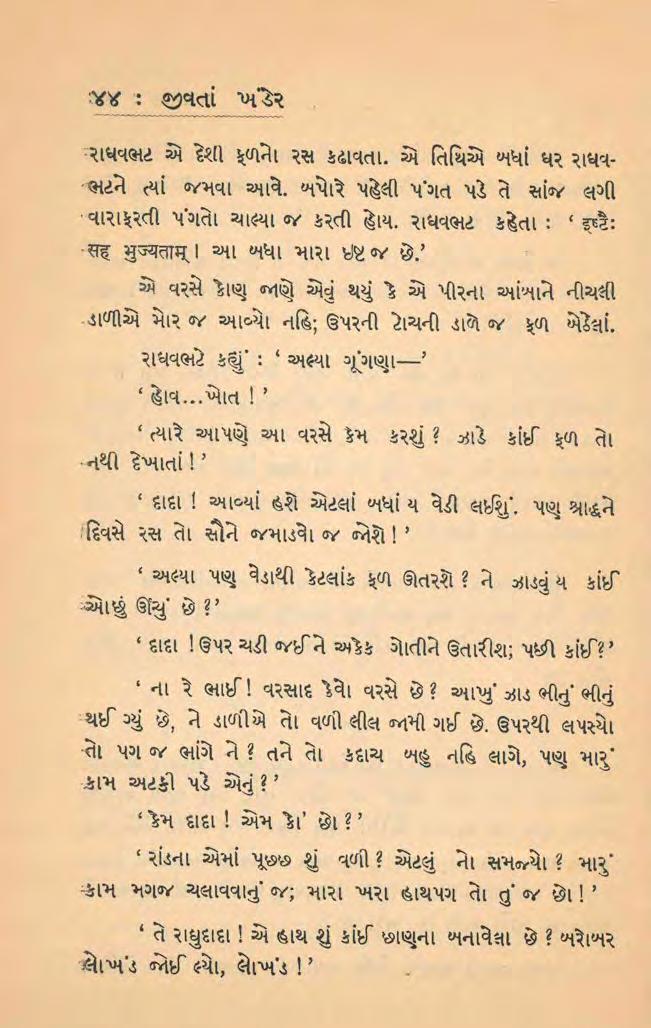 ૪૪ : જીવતાં ખંડેર
રાઘવભટ એ દેશી ફળનો રસ કઢાવતા. એ તિથિએ બધાં ઘર રાઘવ-
ભટને ત્યાં જમવા આવે. બપોરે પહેલી પંગત પડે તે સાંજ લગી
વારાફરતી પંગતો ચાલ્યા જ કરતી હોય. રાઘવભટ કહેતા : ‘ इष्टैः
सह भुज्यताम् । આ બધા મારા ઇષ્ટ જ છે.’
એ વરસે કોણ જાણે એવું થયું કે એ પીરના આંબાને નીચલી
ડાળીએ મોર જ આવ્યો નહિ; ઉપરની ટોચની ડાળે જ ફળ બેઠેલાં.
રાઘવભટે કહ્યું : ‘ અલ્યા ગૂંગણા—’
‘ હોવ...ખોત ! ’
‘ ત્યારે આપણે આ વરસે કેમ કરશું ? ઝાડે કાંઈ ફળ તો
નથી દેખાતાં ! ’
‘ દાદા ! આવ્યાં હશે એટલાં બધાં ય વેડી લઈશું. પણ શ્રાદ્ધને
દિવસે રસ તો સૌને જમાડવો જ જોશે ! ’
‘ અલ્યા પણ વેડાથી કેટલાંક ફળ ઊતરશે ? ને ઝાડવું ય કાંઈ
ઓછું ઊંચું છે ?’
‘ દાદા ! ઉપર ચડી જઈને અકેક ગોતીને ઉતારીશ; પછી કાંઈ?’
‘ ના રે ભાઈ! વરસાદ કેવો વરસે છે? આખું ઝાડ ભીનું ભીનું
થઈ ગ્યું છે, ને ડાળીએ તો વળી લીલ જામી ગઈ છે. ઉપરથી લપસ્યો
તો પગ જ ભાંગે ને ? તને તો કદાચ બહુ નહિ લાગે, પણ મારું
કામ અટકી પડે એનું ? ’
‘ કેમ દાદા ! એમ કો' છો ? ’
‘ રાંડના એમાં પૂછછ શું વળી ? એટલું નો સમજ્યો ? મારું
કામ મગજ ચલાવવાનું જ; મારા ખરા હાથપગ તો તું જ છો ! ’
‘ તે રાઘુદાદા ! એ હાથ શું કાંઈ છાણના બનાવેલા છે ? બરોબર
લોખંડ જોઈ લ્યો, લોખંડ ! ’